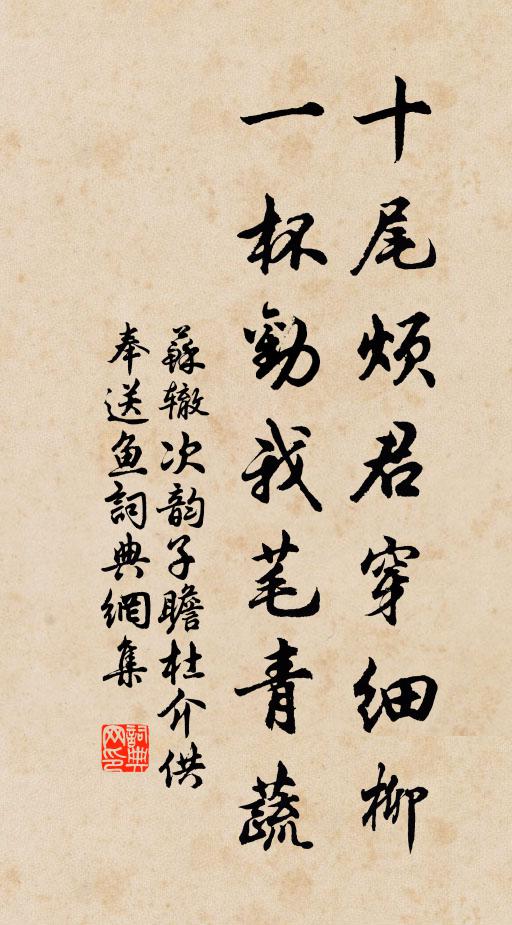 十尾烦君穿细柳
一杯勸我芼青蔬
蘇辙次韵子瞻杜介供
奉送鱼詞典網集
詞典网印